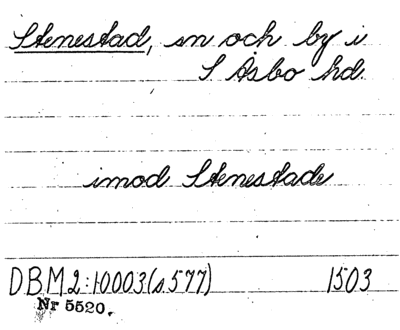 Stenestad, sn och by i
S Åsbo hd.
imod Stenestade
DBM2:10003(s.577) 1503
Nr 5520.